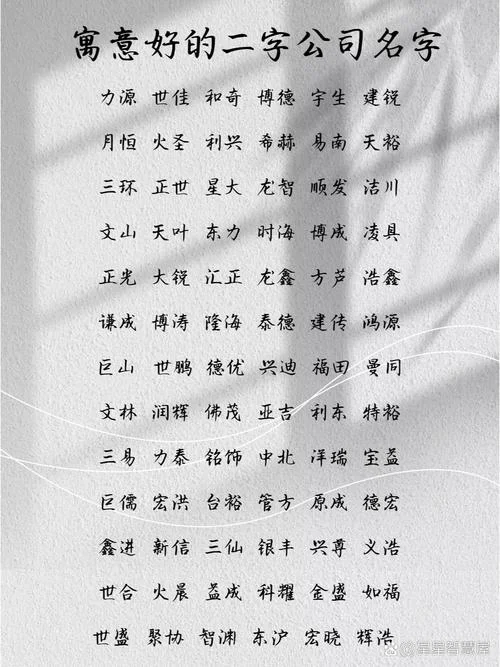 寓意好的二字公司名字
力源 世佳 和奇 博德 宇生 建锐
月恒 火圣 利兴 希赫 易南 天裕
三环 正世 星大 龙智 顺发 洁川
文山 天叶 东力 时海 博成 凌具
正光 大锐 汇正 龙鑫 方芦 浩鑫
谦成 博涛 隆海 泰德 建传 鸿源
巨山 世鹏 德优 兴迪 福田 曼同
文林 润辉 佛茂 亚吉 利东 特裕
三易 力泰 铭饰 中北 洋瑞 宝益
巨儒 宏洪 台裕 管方 原成 德宏
鑫进 新信 三仙 银丰 兴尊 义浩
世合 火晨 益成 科耀 金盛 如福
世盛 聚协 智渊 东沪 宏晓 辉浩
星星智慧屋